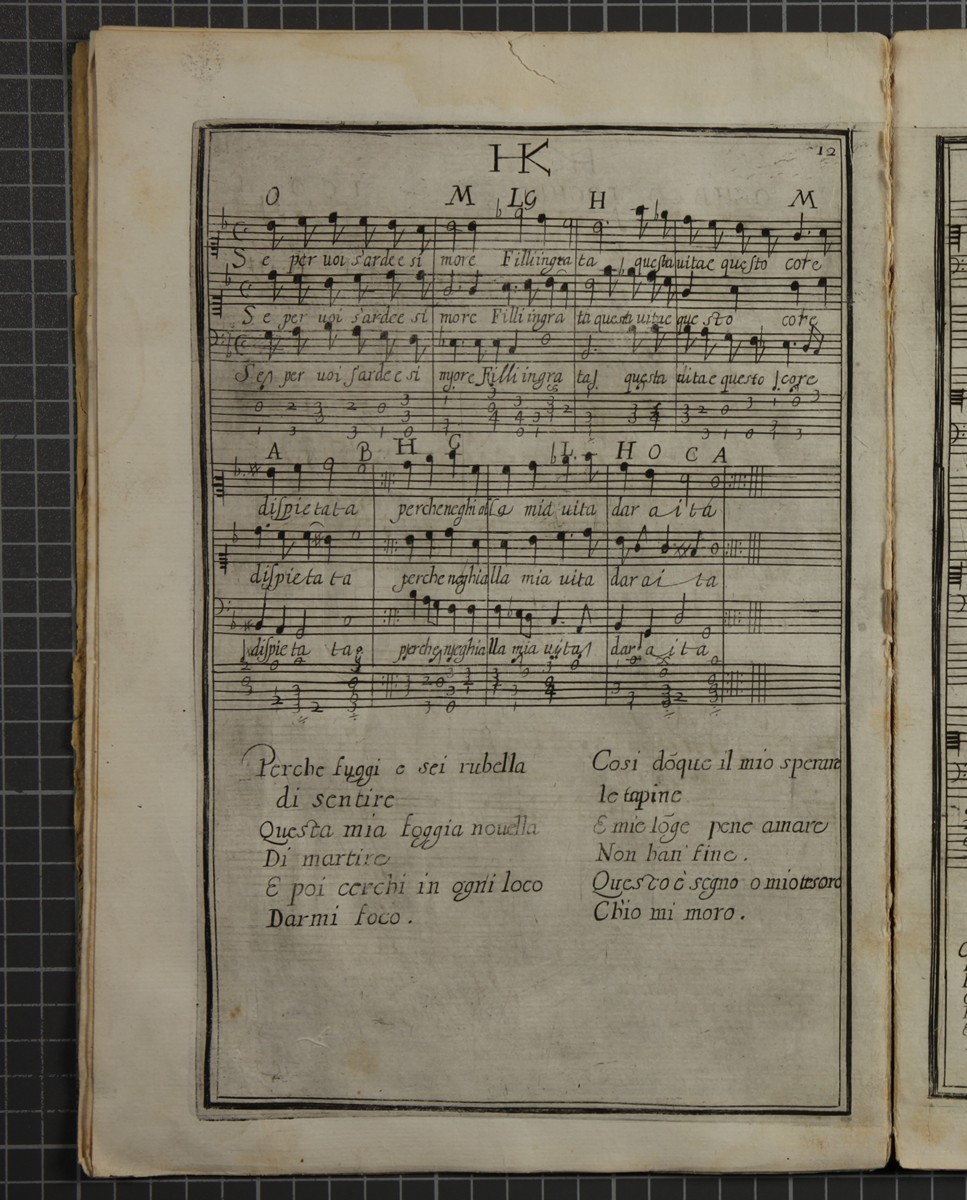 HK
12
O M LG H M
S e per uoi s'arde e si more Filli ingra ta questa uita e questo core
S e per uoi s'arde e si more Filli ingra ta questa uita e que sto core
S e per uoi s'arde e si more Filli ingra ta questa uita e questo core
A B H G L H O C A
dispietata perche neghi alla mia uita dar a i ta
dispieta ta perche neghia lla mia uita dar ai ta
dispieta ta perche neghia lla mia uita dar a i ta
Perche fuggi e sei rubella
di sentire
Questa mia foggia nouella
Di martire
E poi cerchi in ogni loco
Darmi foco.
Cosi dõque il mio sperare
le tapine
E mie lõge pene amare
Non han' fine.
Questo è segno o mio tesoro
Ch'io mi moro.